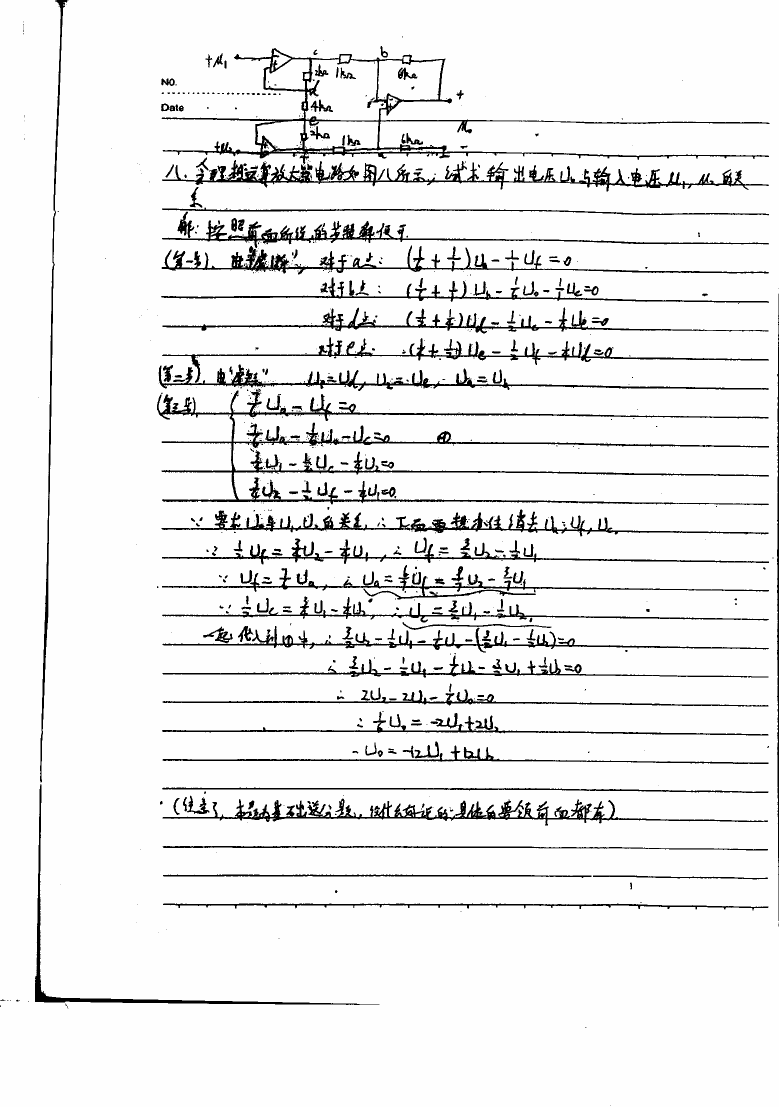 +U₁ c b
2kΩ 1kΩ 6kΩ
NO.
d +
Date 4kΩ
e U₀
2kΩ 1kΩ 6kΩ
+U₂ f a
八、含理想运算放大器电路如图八所示，试求输出电压U₀与输入电压U₁, U₂的关
系.
解：按照前面所说的步骤解便可.
(第一步). 由“虚断”, 对于a点: (1/6 + 1/1)Ua - 1/1 Uf = 0
对于b点: (1/6 + 1/1)Ub - 1/6 U₀ - 1/1 Uc = 0
对于d点: (1/2 + 1/4)Ud - 1/2 Uc - 1/4 Ue = 0
对于e点: (1/4 + 1/2)Ue - 1/2 Uf - 1/4 Ud = 0
(第二步). 由“虚短” U₁ = Ud, U₂ = Ue, Ua = Ub
(第三步) { 7/6 Ua - Uf = 0
7/6 Ua - 1/6 U₀ - Uc = 0 ①
3/4 U₁ - 1/2 Uc - 1/4 U₂ = 0
3/4 U₂ - 1/2 Uf - 1/4 U₁ = 0.
∵ 要求U₀与U₁, U₂的关系, ∴ 下面要想办法消去Ua, Uf, Uc.
∵ 1/2 Uf = 3/4 U₂ - 1/4 U₁, ∴ Uf = 3/2 U₂ - 1/2 U₁
∵ Uf = 7/6 Ua, ∴ Ua = 6/7 Uf = 9/7 U₂ - 3/7 U₁
∵ 1/2 Uc = 3/4 U₁ - 1/4 U₂, ∴ Uc = 3/2 U₁ - 1/2 U₂,
一起代入到①中, ∴ 3/2 U₂ - 1/2 U₁ - 1/6 U₀ - (3/2 U₁ - 1/2 U₂) = 0
∴ 3/2 U₂ - 1/2 U₁ - 1/6 U₀ - 3/2 U₁ + 1/2 U₂ = 0
∴ 2U₂ - 2U₁ - 1/6 U₀ = 0
∴ 1/6 U₀ = -2U₁ + 2U₂
∴ U₀ = -12U₁ + 12U₂
(注意了, 本题为基础送分题, 没什么好说的, 具体的要领前面都有)
1